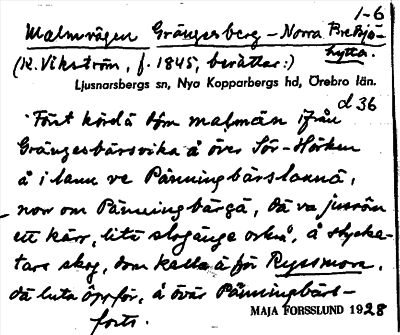 1-6
Malmvägen Grängesberg – Norra Bredsjö-
hytta.
(K. Vikström, f. 1845, berättar:)
Ljusnarsbergs sn, Nya Kopparbergs hd, Örebro län.
d 36
Först körda dom malmän ifrån
Grängesbärsvika å över Sör-Hörken
å i lann ve Pänningbärslannä,
norr om Pänningbärgä, dä va jussom
ett kärr, lite å å stycke-
tars skog, dom kalla ä för Ryssmora.
dä luta öppför, å över Pänningbärs-
forts.
MAJA FORSSLUND 1928